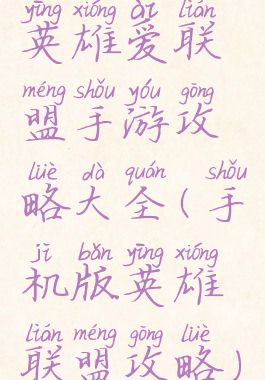 yīng xióng ài lián
英雄爱联
méng shǒu yóu gōng
盟手游攻
lüè dà quán shǒu
略大全(手
jī bǎn yīng xióng
机版英雄
lián méng gōng lüè
联盟攻略)